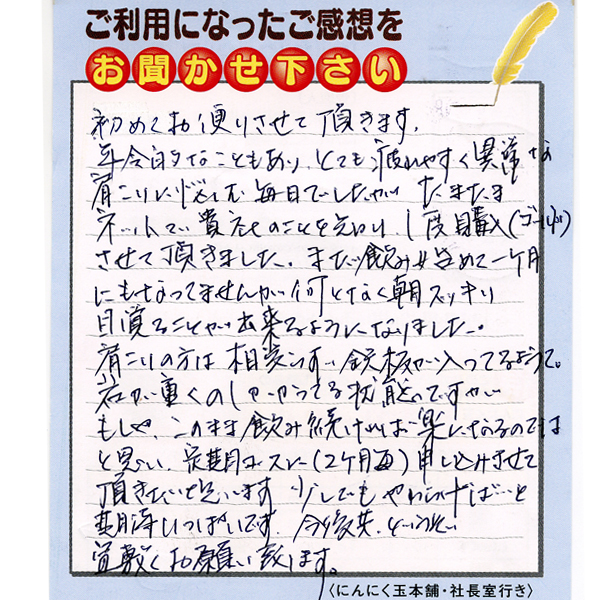 ご利用になったご感想を
お聞かせ下さい
初めてお便りさせて頂きます。
年令的なこともあり、とても疲れやすく異常な
肩こりに悩む毎日でしたが たまたま
ネットで貴社のことを知り、1度購入(ゴールド)
させて頂きました。まだ飲み始めて一ヶ月
にもなってませんが何となく朝スッキリ
目覚ることが出来るようになりました。
肩こりの方は相当です。鉄板が入ってるようで。
岩が重くのしかかってる状態ですが
もしや、このまま飲み続ければ楽になるのでは
と思い、定期コースに(2ヶ月毎)申し込みさせて
頂きたいと思います 少しでもやわらげば…と
期待いっぱいです。今後共、どうぞ
宜敷くお願い致します。
〈にんにく玉本舗・社長室行き〉